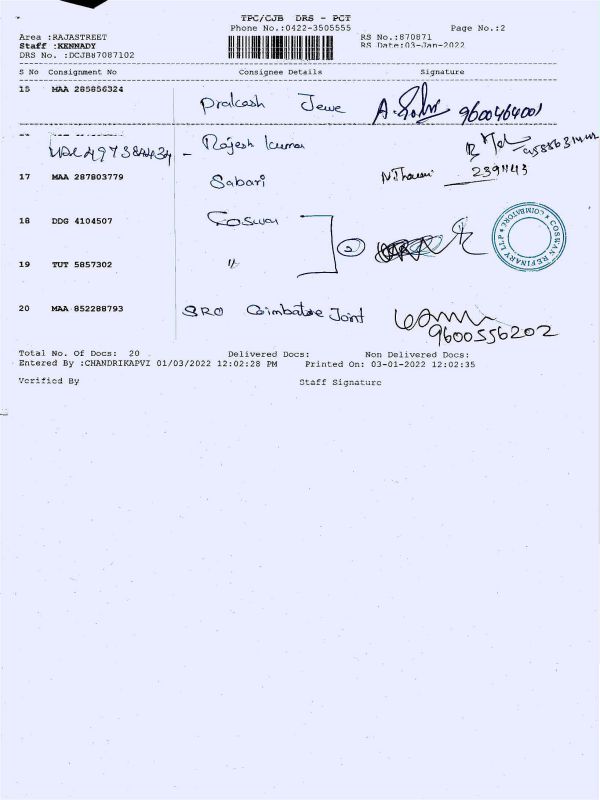 TPC/CJB DRS - PCT
Phone No.:0422-3505555 Page No.:2
Area :RAJASTREET RS No.:870871
Staff :KENNADY RS Date:03-Jan-2022
DRS No. :DCJB87087102
S No Consignment No Consignee Details Signature
15 MAA 285856324 Prakash Jewe 9600464001
Rajesh Kumar
17 MAA 287803779 Sabari 2391143
18 DDG 4104507 Coswan 2
19 TUT 5857302 "
COSWAN REFINARY LLP ★ COIMBATORE ★
20 MAA 852288793 SRO Coimbatore Joint
9600556202
Total No. Of Docs: 20 Delivered Docs: Non Delivered Docs:
Entered By :CHANDRIKAPVZ 01/03/2022 12:02:28 PM Printed On: 03-01-2022 12:02:35
Verified By Staff Signature